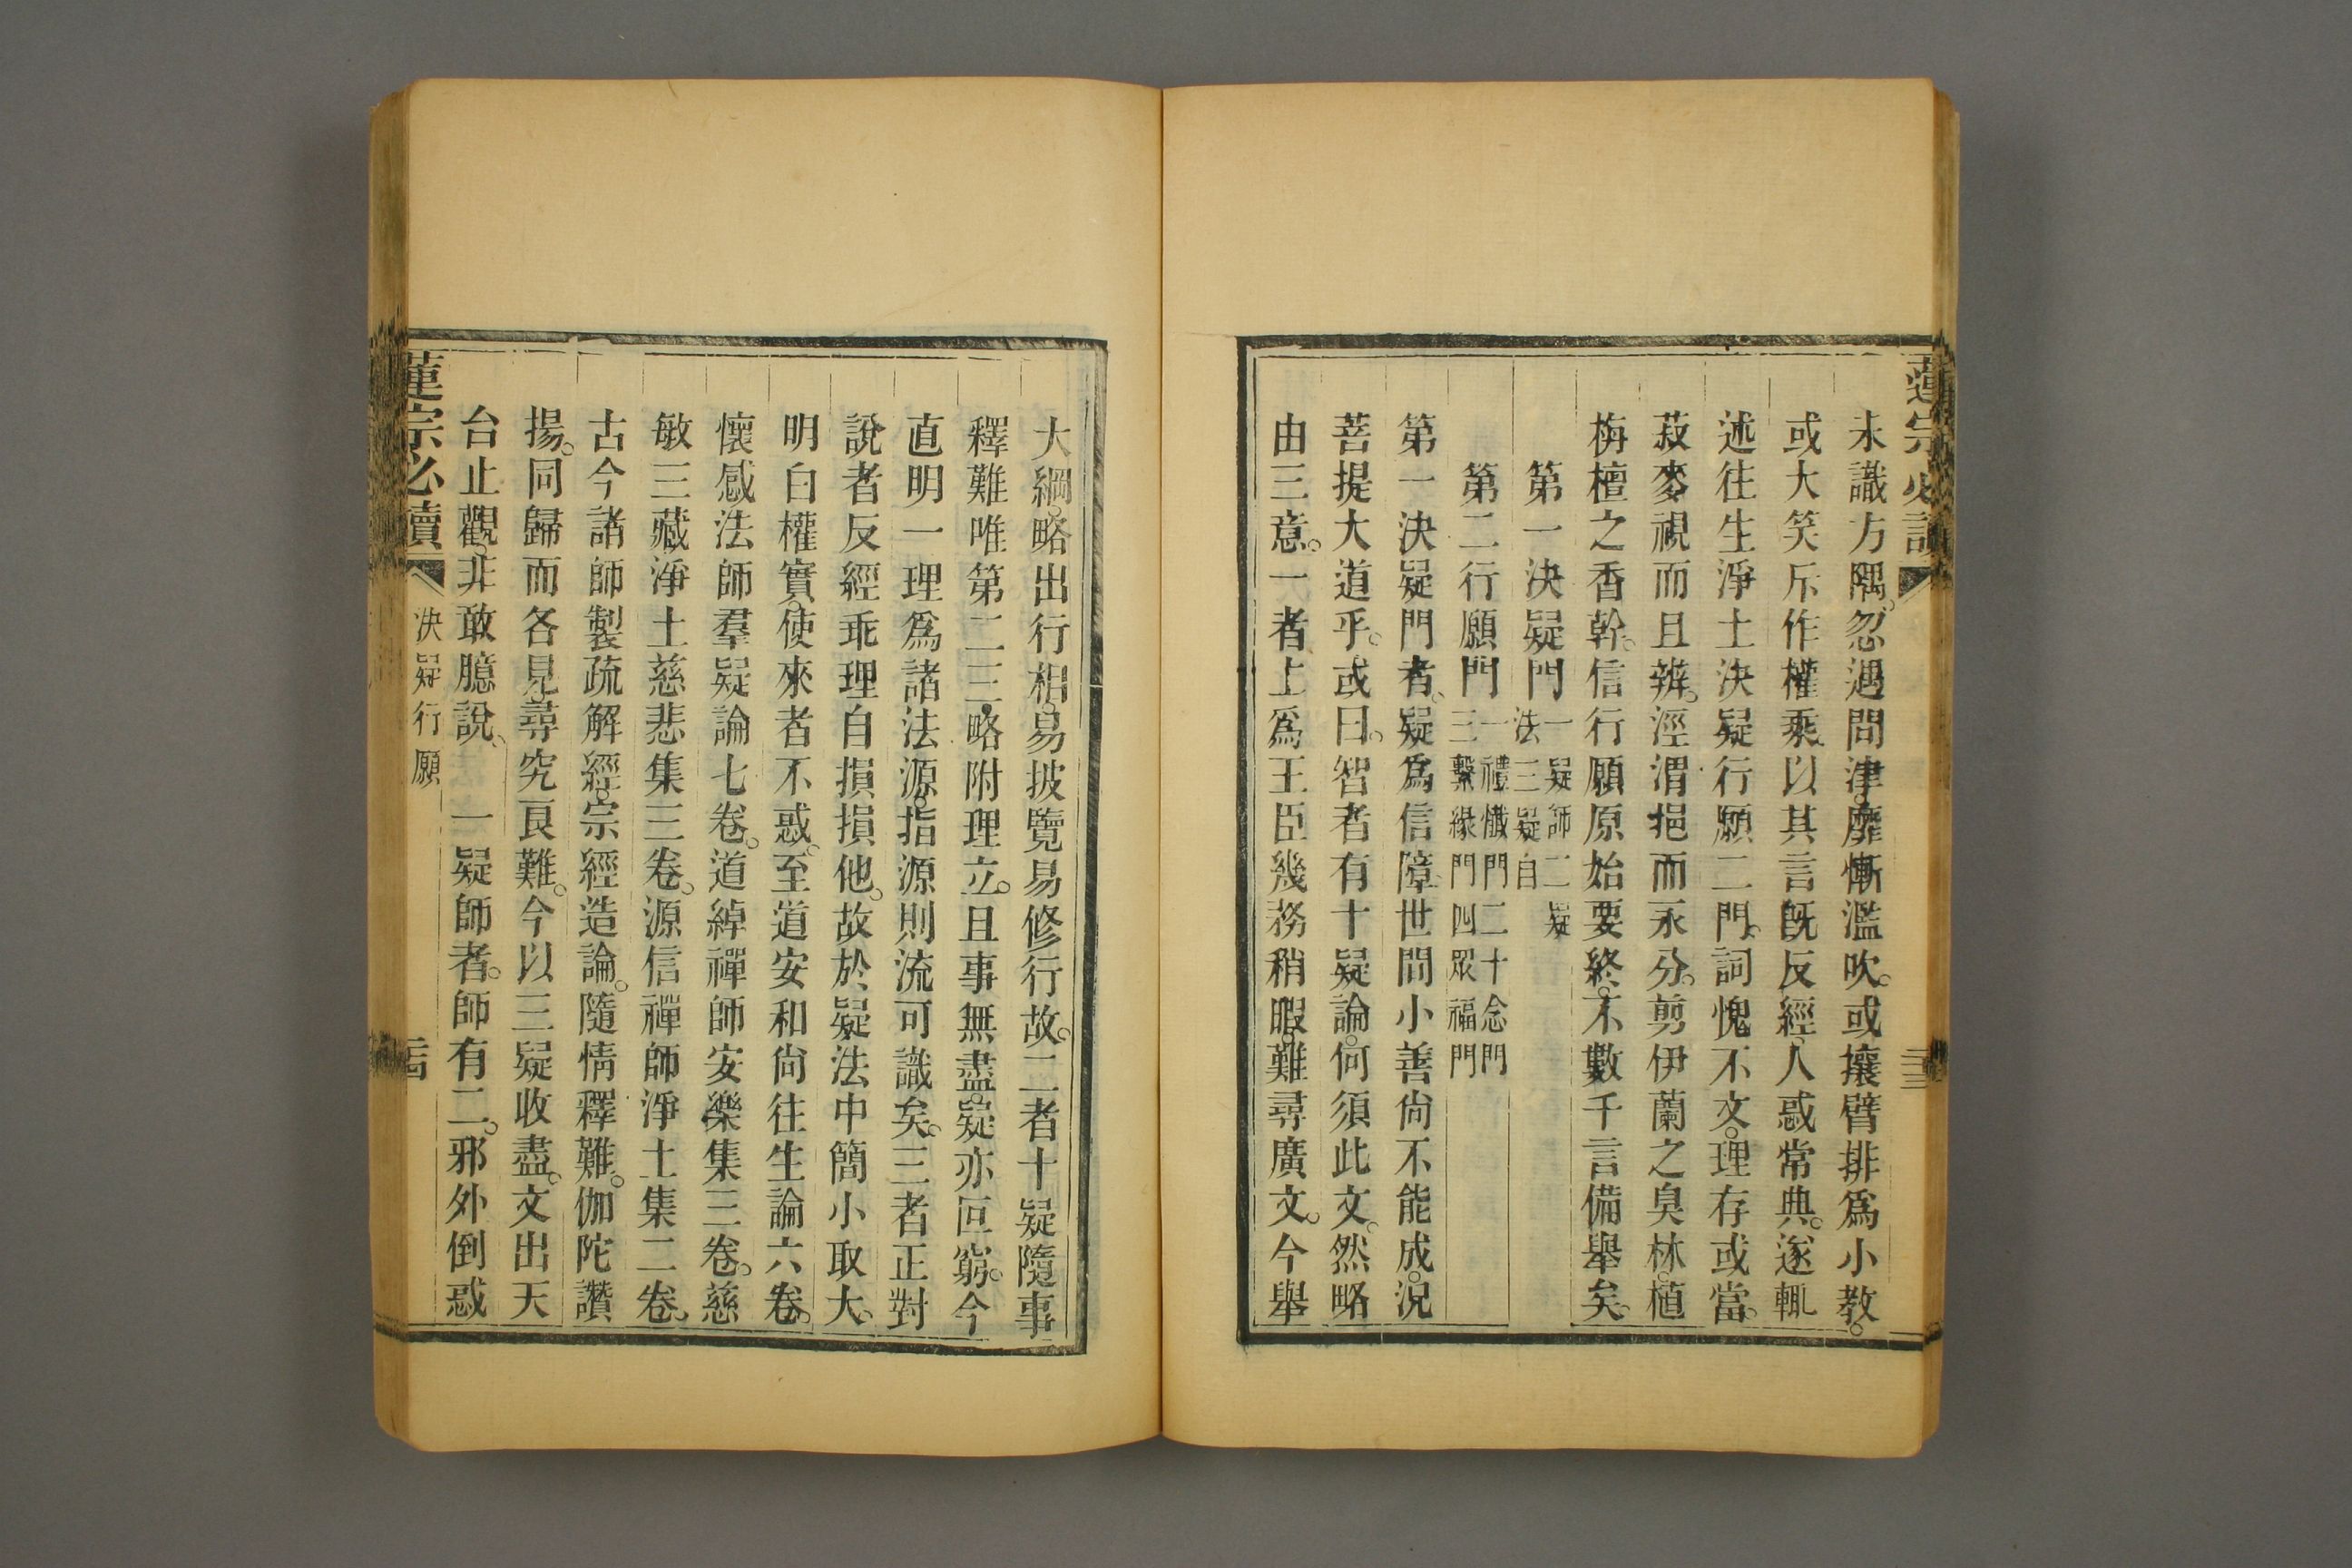 蓮宗必讀
未識方隅。忽遇問津。靡慚濫吹。或攘臂排爲小教。
或大笑斥作權乘。以其言旣反經。人惑常典。遂輒
述往生淨土決疑行願二門。詞愧不文。理存或當。
菽麥視而且辨。涇渭挹而永分。剪伊蘭之臭林。植
栴檀之香幹。信行願原始要終。不數千言備舉矣。
第一決疑門 一疑師 二疑
法 三疑自
第二行願門 一禮懺門 二十念門
三繫緣門 四眾福門
第一決疑門者。疑爲信障。世間小善尙不能成。況
菩提大道乎。或曰。智者有十疑論。何須此文。然略
由三意。一者上爲王臣幾務稍暇。難尋廣文。今舉
大綱。略出行相。易披覽易修行故。二者十疑隨事
釋難唯第二三。略附理立。且事無盡。疑亦叵窮。今
直明一理爲諸法源。指源則流可識矣。三者正對
說者反經乖理自損損他。故於疑法中簡小取大。
明白權實。使來者不惑。至道安和尙往生論六卷。
懷感法師羣疑論七卷。道綽禪師安樂集三卷。慈
敏三藏淨土慈悲集三卷。源信禪師淨土集二卷。
古今諸師製疏解經。宗經造論。隨情釋難。伽陀讚
揚。同歸而各見。尋究良難。今以三疑收盡。文出天
台止觀。非敢臆說。 一疑師者。師有二。邪外倒惑
蓮宗必讀 決疑行願